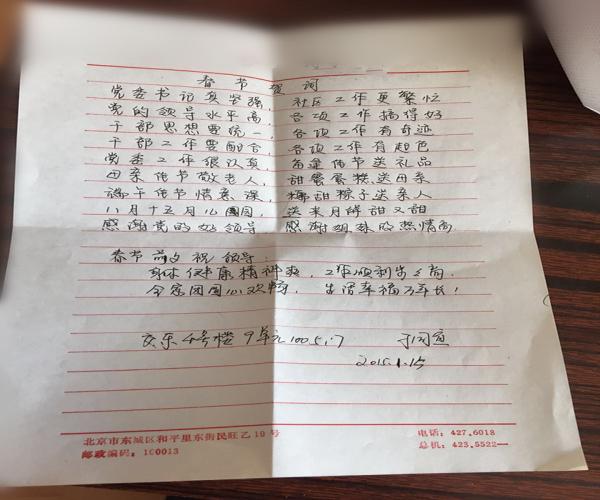 春节贺词
党委书记真坚强，社区工作更繁忙
党的领导水平高，各项工作搞得好
干部思想要统一，各项工作有奇迹
干部工作要配合，各项工作有起色
党委工作很认真 每逢佳节送礼品
母亲佳节敬老人，甜蜜蛋糕送母亲
端午佳节情意深，棉甜粽子送亲人
八月十五月儿圆圆，送来月饼甜又甜
感谢党的好领导 感谢 的热情高
春节前夕祝领导：
身体健康精神爽，工作顺利步步高
全家团圆心欢畅，生活幸福万年长！
安乐4号楼9单元
2015.1.15
北京市东城区和平里东街民旺乙19号
邮政编码：100013
电话：427.6018
总机：423.5522—